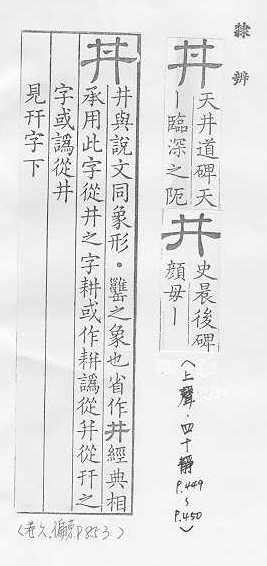 隸辨
丼 天井道碑天
｜臨深之阨
井 史晨後碑
顏母｜
（上聲．四十靜
P.449
～
P.450）
丼 丼與說文同象形．罋之象也省作井經典相
承用此字從井之字耕或作耕譌從幵從幵之
字或譌從井
見幵字下
（卷六、偏旁P.853.）